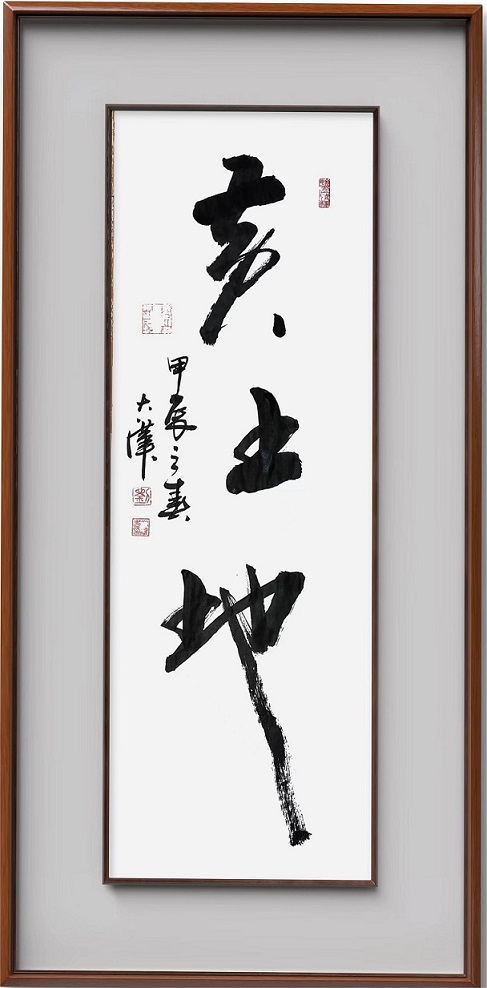 黄土地
甲辰之春
大漢